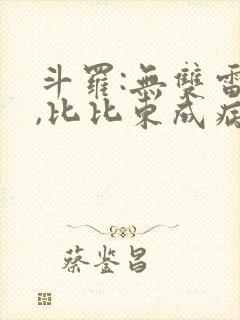 斗羅:無雙雷
,比比東成病
蔡鉴昌